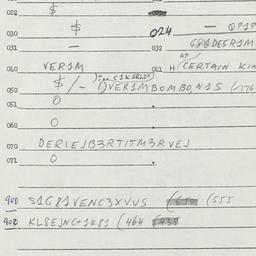 022 $
030 $ 024 — QP1P
031 — 032 G81DE5R1M
040 VER1M 041 H(CERTAIN KIN
050 $/- ()VER1MBOMBO,N1S (/176
051 0
060 0
070 DERLEJB3RTITM3RVEJ
072 0
400 S1G81VENC3XVUS (555
402 KL8EJNC+1K81 (464